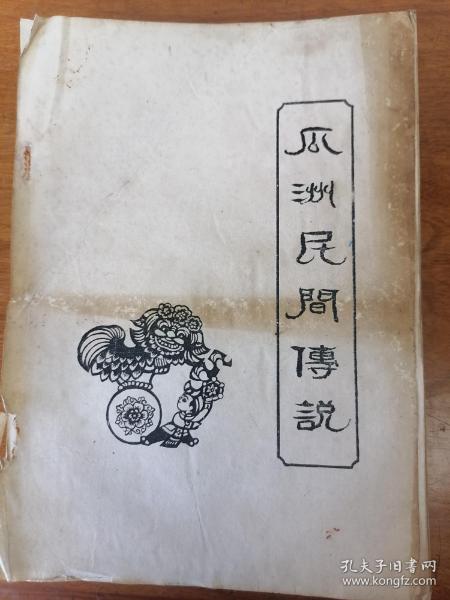 瓜洲民間傳説
孔夫子旧书网
www.kongfz.com